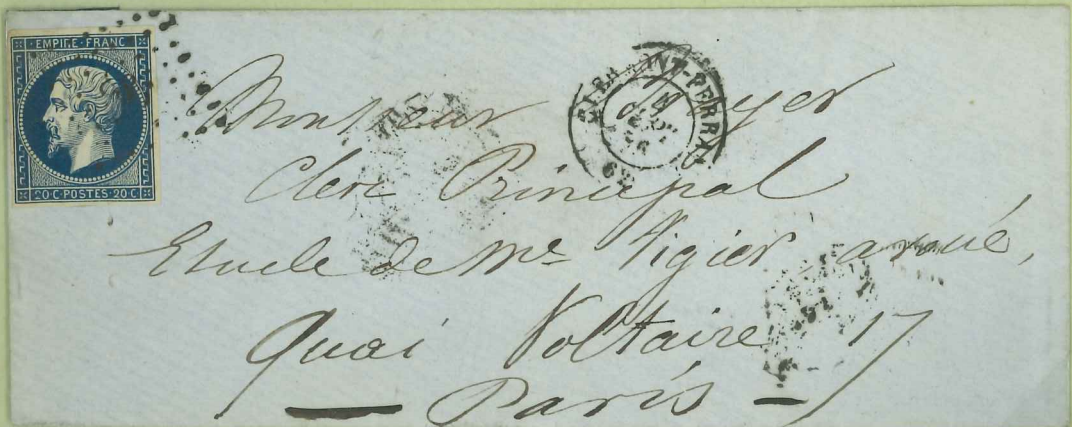 EMPIRE FRANC
20·C·POSTES·20·C
CLERMONT-FERRAND
Monsieur
Clerc Principal
Etude de Me Vigier, avoué,
Quai Voltaire 17
Paris